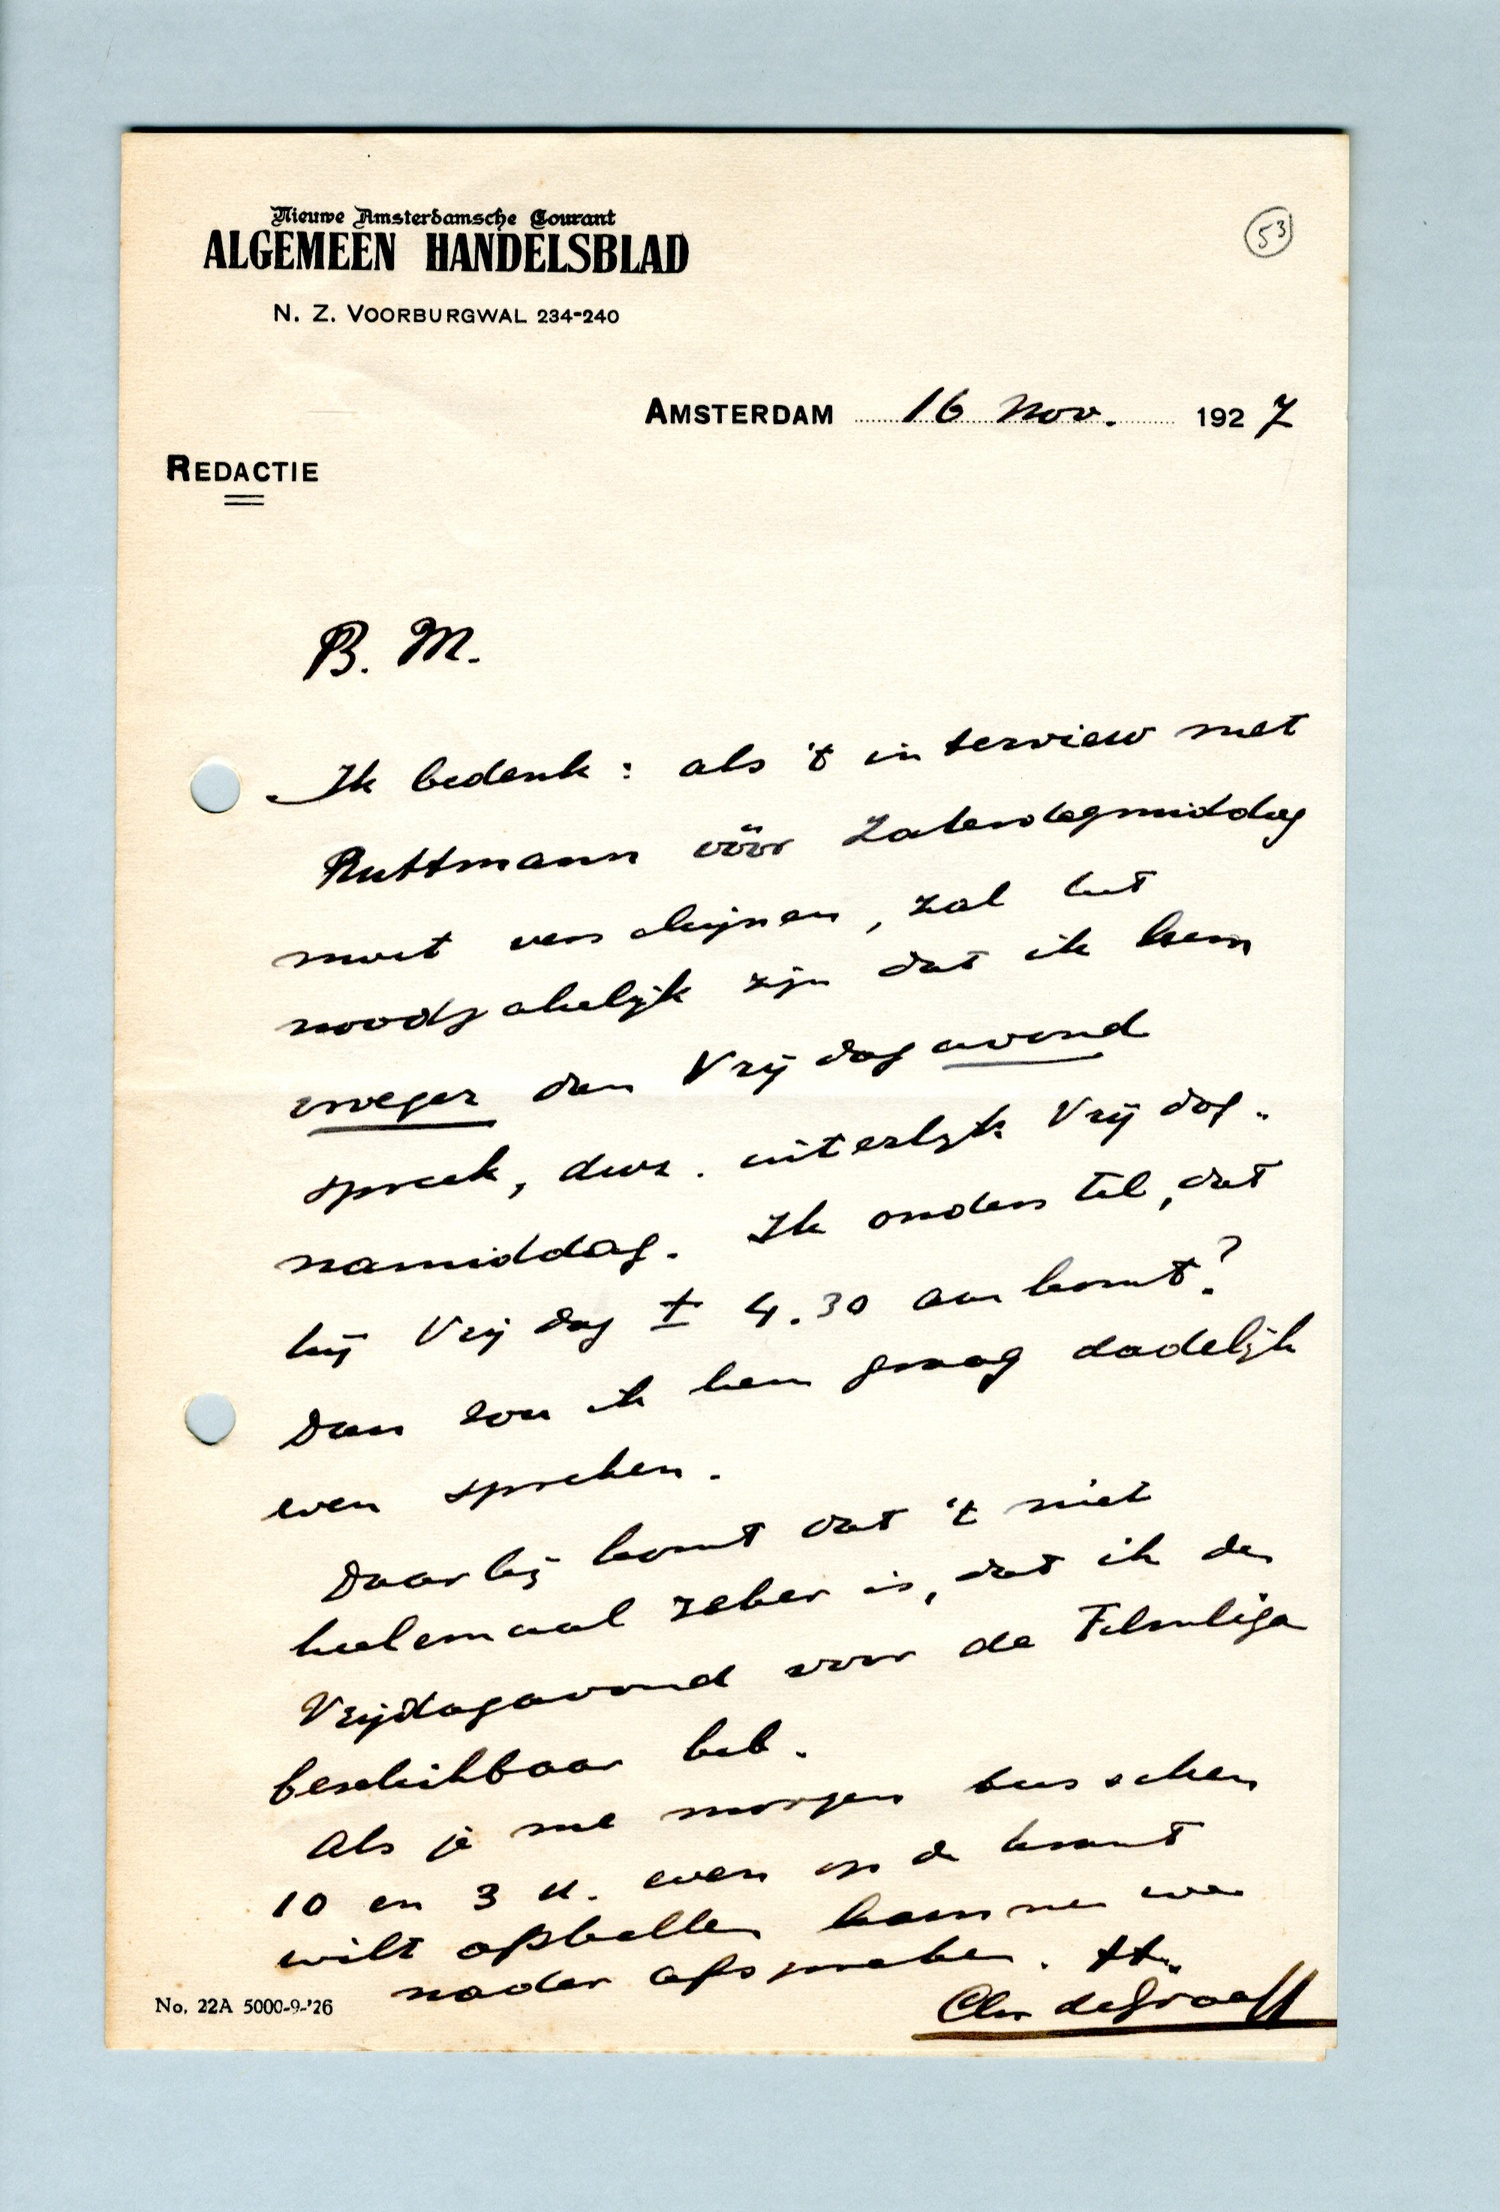 Nieuwe Amsterdamsche Courant
ALGEMEEN HANDELSBLAD
N. Z. VOORBURGWAL 234-240
53
AMSTERDAM 16 Nov. 1927
REDACTIE
B. M.
Ik bedenk: als 't interview met
Ruttmann vóór Zaterdagmiddag
moet verschijnen, zal het
noodzakelijk zijn dat ik hem
vroeger dan Vrijdagavond
spreek, d.w.z. uiterlijk Vrijdag-
namiddag. Ik onderstel, dat
hij Vrijdag ± 4.30 aankomt?
Dan zou ik hem graag dadelijk
even spreken.
Daarbij komt dat 't niet
heelemaal zeker is, dat ik den
Vrijdagavond voor de Filmliga
beschikbaar heb.
Als je me morgen tusschen
10 en 3 u. even op de krant
wilt opbellen kunnen we
nader afspreken. tt.
Chr de Graaff
No. 22A 5000-9-'26